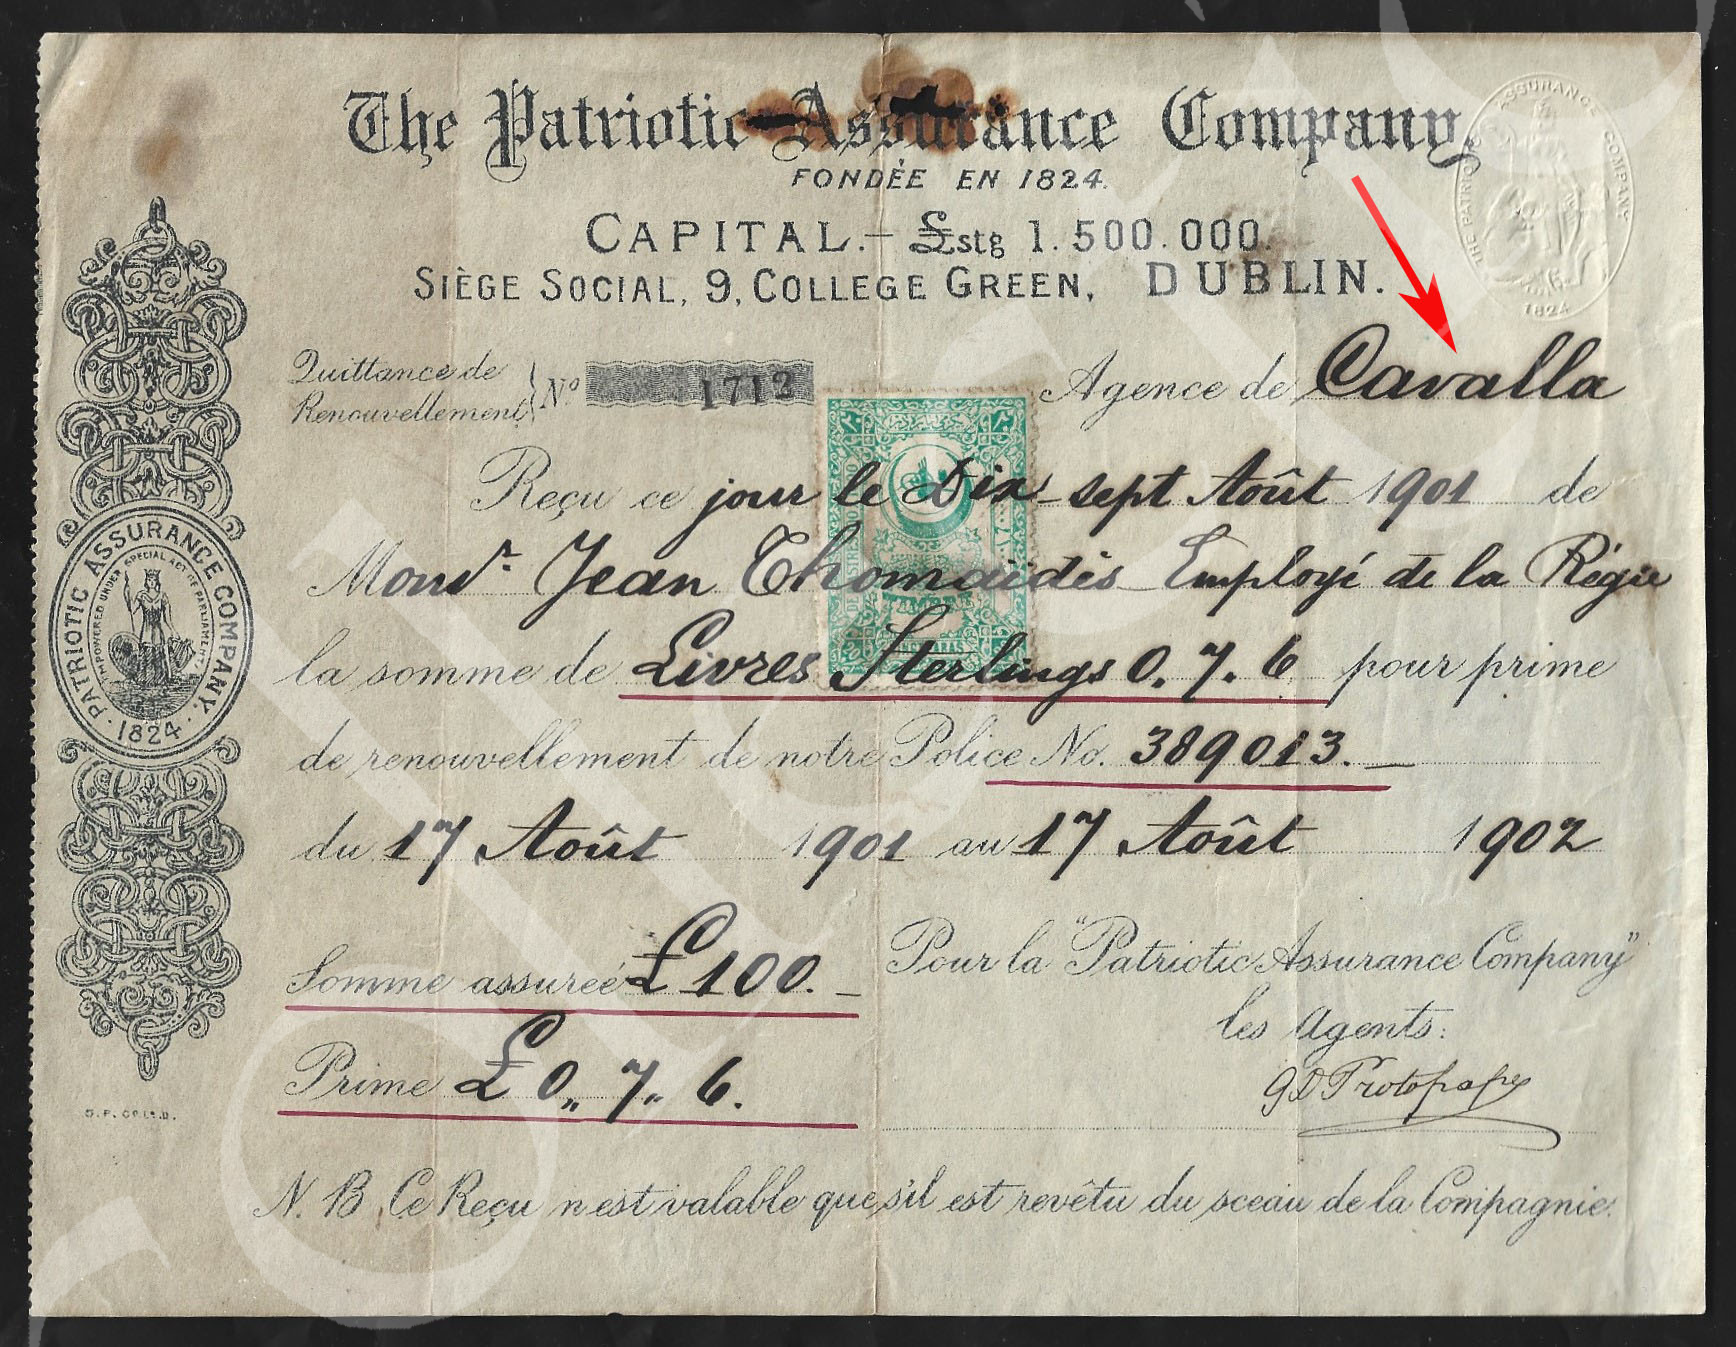 The Patriotic Assurance Company
FONDÉE EN 1824.
CAPITAL.– £stg 1.500.000.
SIÈGE SOCIAL, 9, COLLEGE GREEN, DUBLIN.
THE PATRIOTIC ASSURANCE COMPANY
1824
Quittance de
Renouvellement
No 1712
Agence de Cavalla
Reçu ce jour le Dix-sept Août 1901 de
Monsr. Jean Thomaïdès Employé de la Régie
la somme de Livres Sterlings 0. 7. 6 pour prime
de renouvellement de notre Police No. 389013.
du 17 Août 1901 au 17 Août 1902
PATRIOTIC ASSURANCE COMPANY.
EMPOWERED UNDER SPECIAL ACT OF PARLIAMENT
· 1824 ·
Somme assurée £ 100. –
Prime £ 0 ,, 7 ,, 6.
Pour la "Patriotic Assurance Company"
les Agents:
G D Protopapa
N. B. Ce Reçu n'est valable que s'il est revêtu du sceau de la Compagnie.